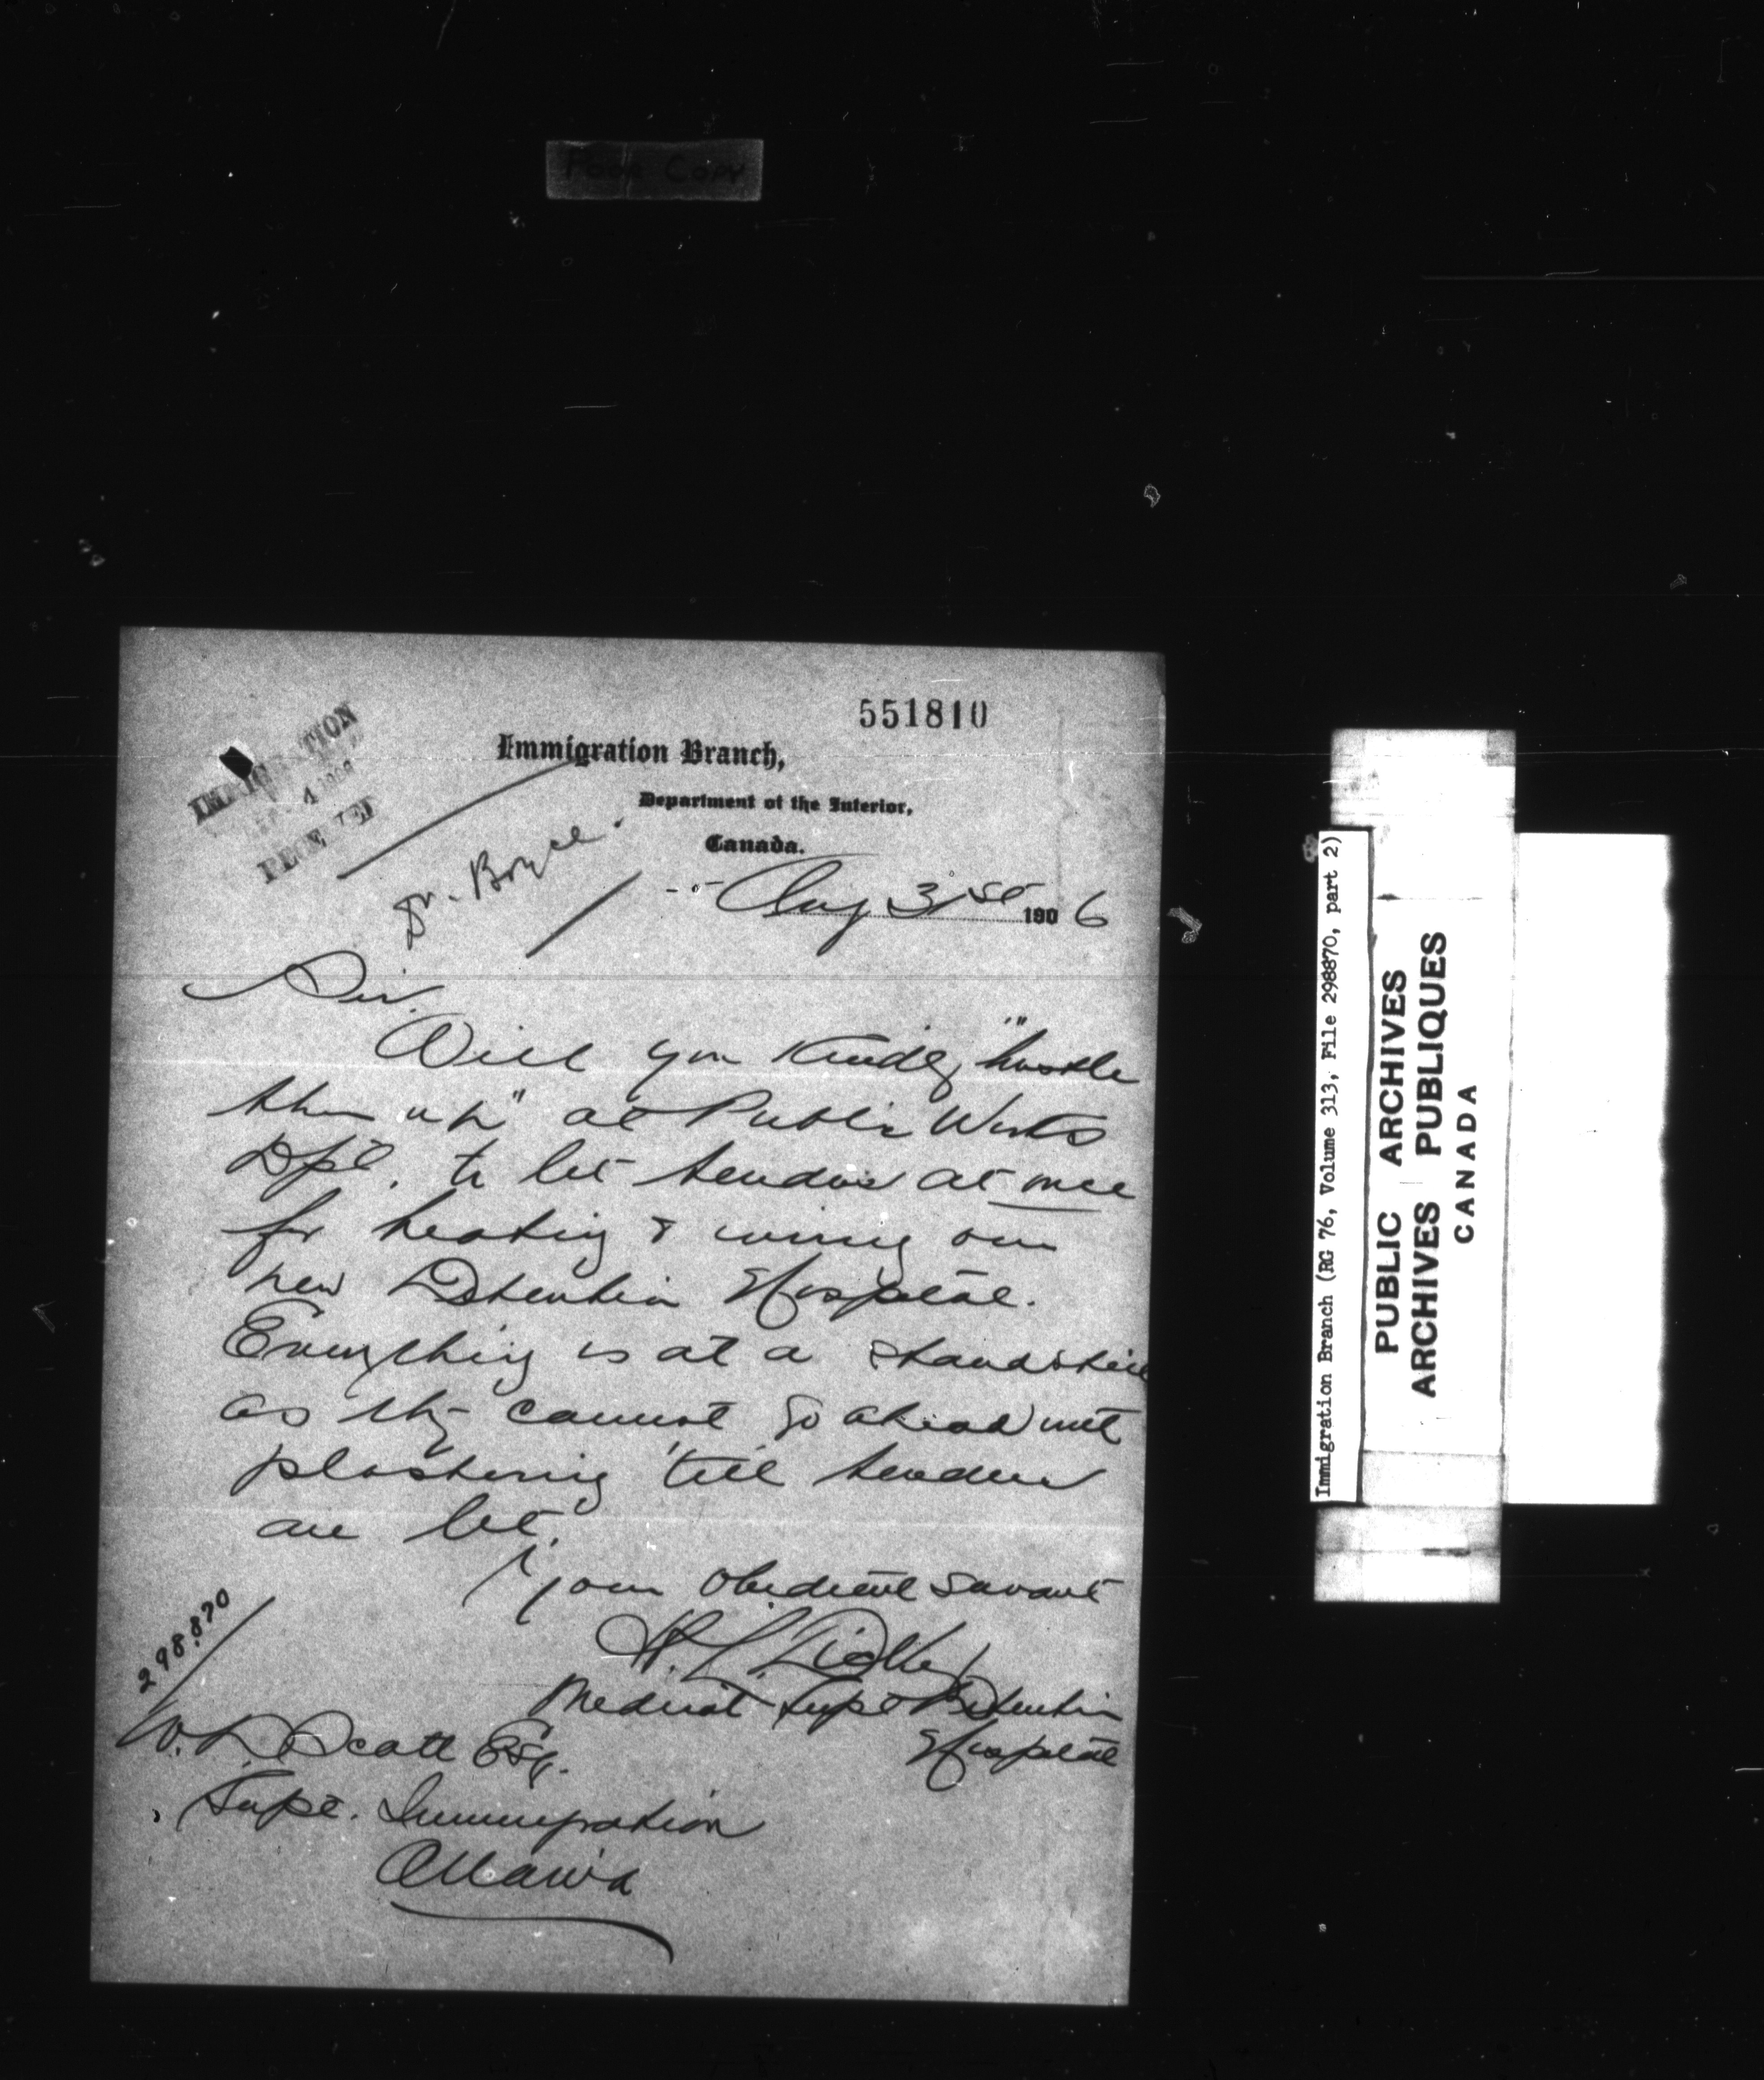 Poor Copy
551810
IMMIGRATION
4 1906
RECEIVED
Immigration Branch,
Department of the Interior,
Canada.
Dr. Bryce.
Aug 31st 1906
Sir.
Will you kindly "hustle
them up" at Public Works
Dpt. to let tenders at once
for heating & wiring our
new Detention Hospital.
Everything is at a standstill
as they cannot go ahead with
plastering 'till tenders
are let.
Your Obedient Servant
Medical Supt Detention
Hospital
298.870
W. D. Scott Esq.
Supt. Immigration
Ottawa
Immigration Branch (RG 76, Volume 313, File 298870, part 2)
PUBLIC ARCHIVES
ARCHIVES PUBLIQUES
CANADA